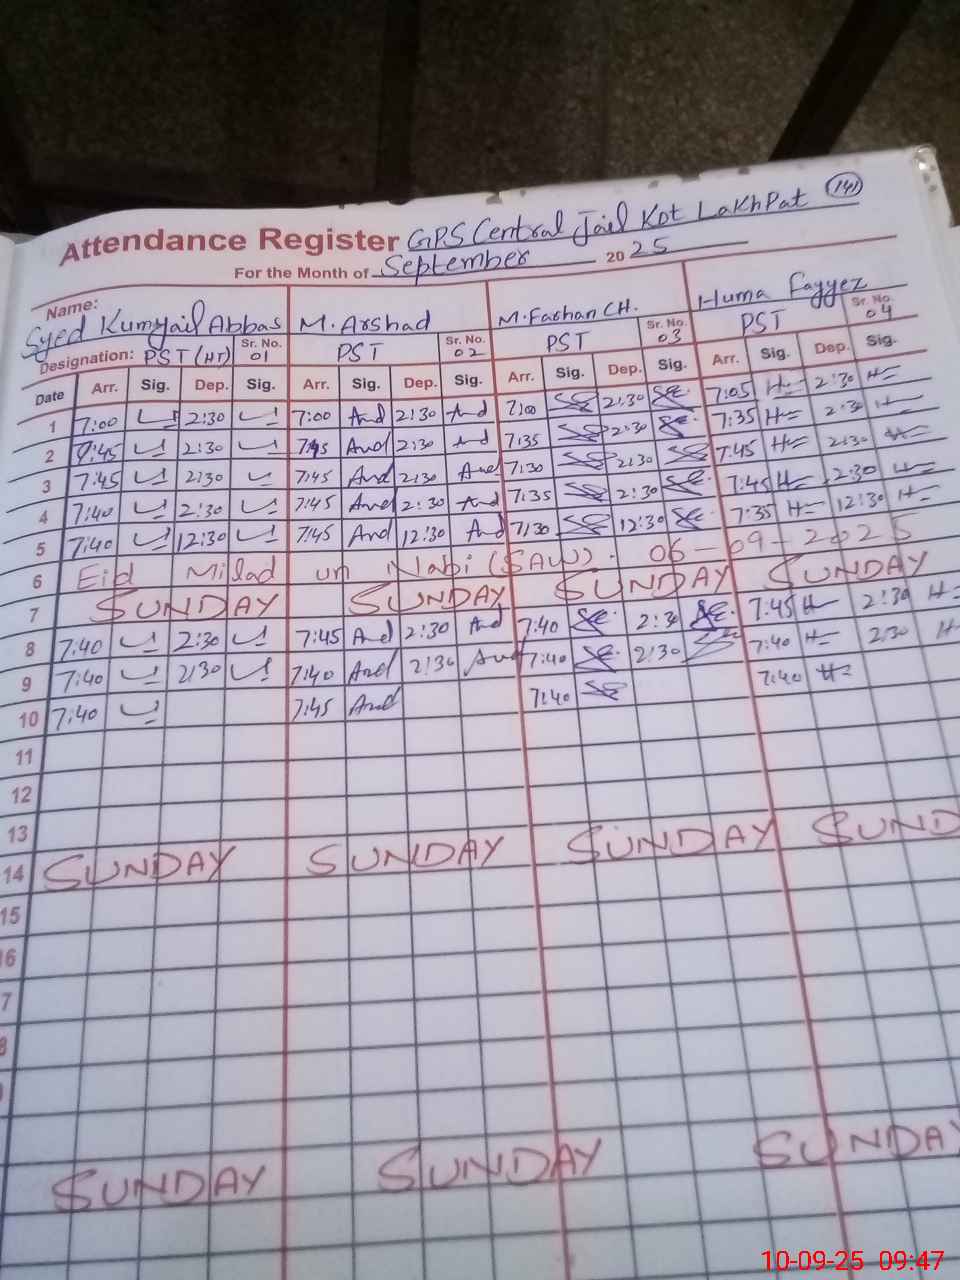 141
Attendance Register GPS Central Jail Kot LakhPat
For the Month of September 2025
Name: Syed Kumyail Abbas M. Arshad M. Farhan CH. Huma Fayyez
Designation: PST (HT) Sr. No. 01 PST Sr. No. 02 PST Sr. No. 03 PST Sr. No. 04
Date Arr. Sig. Dep. Sig. Arr. Sig. Dep. Sig. Arr. Sig. Dep. Sig. Arr. Sig. Dep. Sig.
1 7:00 2:30 7:00 2:30 7:00 2:30 7:05 2:30
2 7:45 2:30 7:45 2:30 7:35 2:30 7:35 2:30
3 7:45 2:30 7:45 2:30 7:30 2:30 7:45 2:30
4 7:40 2:30 7:45 2:30 7:35 2:30 7:45 2:30
5 7:40 12:30 7:45 12:30 7:30 12:30 7:35 12:30
6 Eid Milad un Nabi (SAW). 06-09-2025
7 SUNDAY SUNDAY SUNDAY SUNDAY
8 7:40 2:30 7:45 2:30 7:40 2:30 7:45 2:30
9 7:40 2:30 7:40 2:30 7:40 2:30 7:40 2:30
10 7:40 7:45 7:40 7:40
11
12
13
14 SUNDAY SUNDAY SUNDAY SUND
15
16
7
8
SUNDAY SUNDAY SUNDAY
10-09-25 09:47